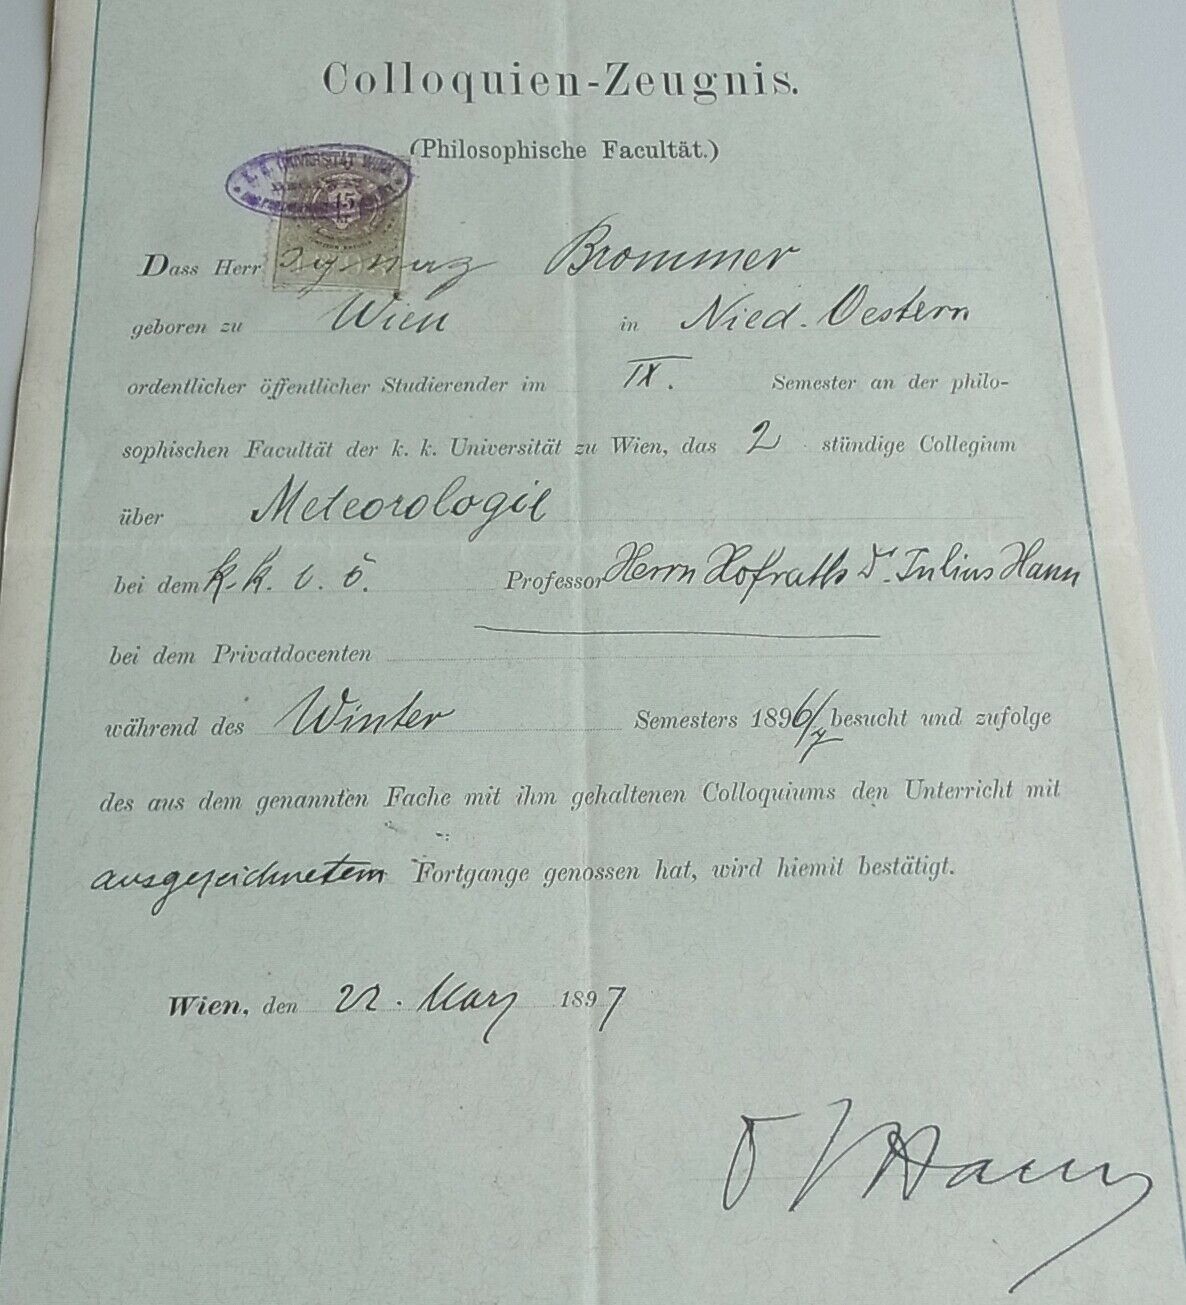 Colloquien-Zeugnis.
(Philosophische Facultät.)
K. K. UNIVERSITÄT WIEN
15
Dass Herr Ignaz Brommer
geboren zu Wien in Nied. Oestern
ordentlicher öffentlicher Studierender im IX. Semester an der philo-
sophischen Facultät der k. k. Universität zu Wien, das 2 stündige Collegium
über Meteorologie
bei dem k. k. o. ö. Professor Herrn Hofrath Dr. Julius Hann
bei dem Privatdocenten
während des Winter Semesters 1896/7 besucht und zufolge
des aus dem genannten Fache mit ihm gehaltenen Colloquiums den Unterricht mit
ausgezeichnetem Fortgange genossen hat, wird hiemit bestätigt.
Wien, den 22. März 1897
Dr J Hann